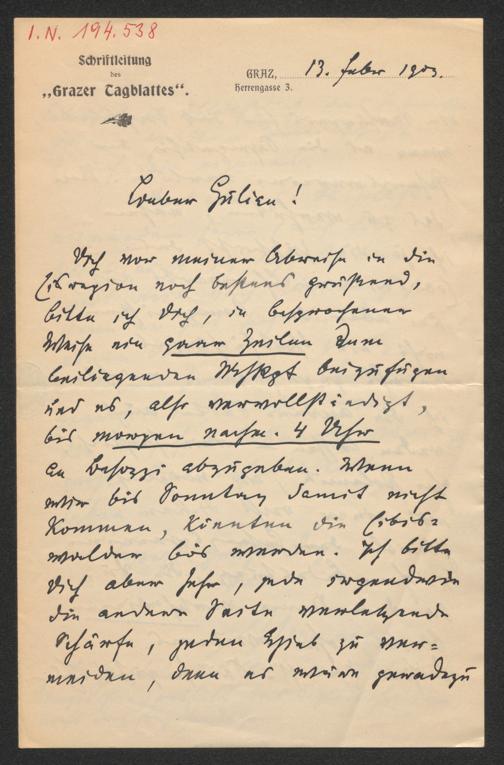 I.N. 194.538
Schriftleitung
des
„Grazer Tagblattes“.
GRAZ, 13. Feber 1903.
Herrengasse 3.
Lieber Julian!
Dich vor meiner Abreise in die
Eisregion noch bestens grüßend,
bitte ich Dich, in besprochener
Weise ein paar Zeilen dem
beiliegenden Mskpt beizufügen
und es, also vervollständigt,
bis morgen nachm. 4 Uhr
an abzugeben. Wenn
wir bis Sonntag damit nicht
kommen, könnten die Eibis-
walder bös werden. Ich bitte
Dich aber sehr, jede irgendwie
die andere Seite verletzende
Schärfe, jeden Hieb zu ver-
meiden, denn es wäre geradezu